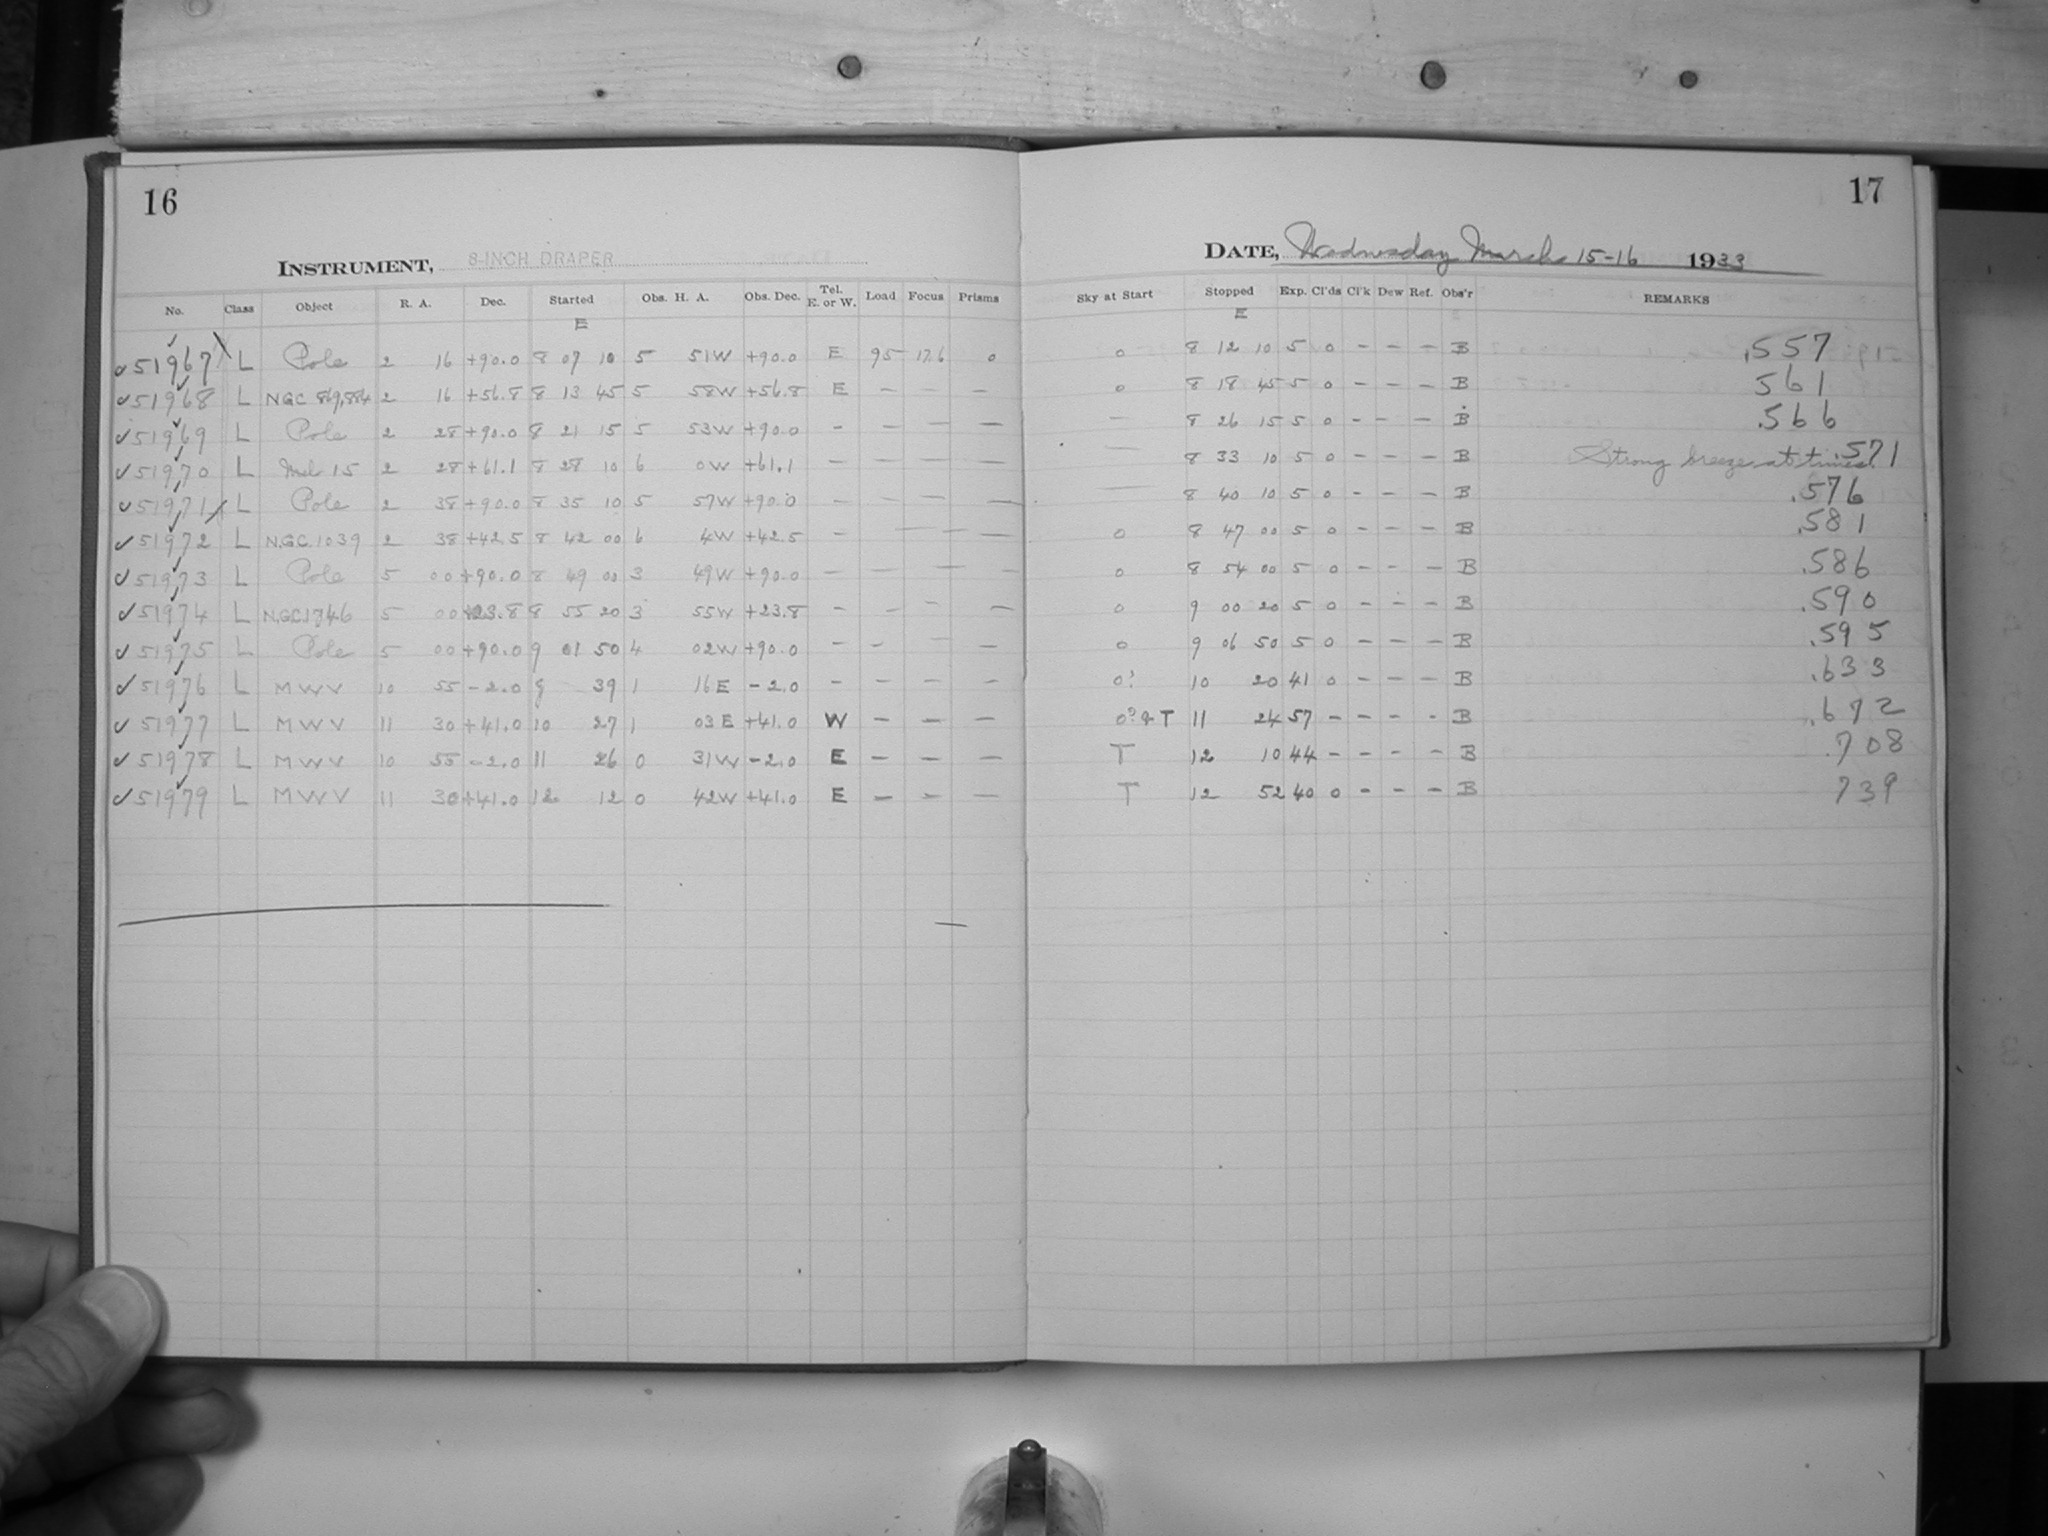 16
INSTRUMENT, 8-INCH DRAPER
No. Class Object R. A. Dec. Started Obs. H. A. Obs. Dec. Tel. E. or W. Load Focus Prisms
E
51967 L Pole 2 16 +90.0 8 07 10 5 51W +90.0 E 95 17.6 0
51968 L NGC 869,884 2 16 +56.8 8 13 45 5 58W +56.8 E — —
51969 L Pole 2 28 +90.0 8 21 15 5 53W +90.0 — — — —
51970 L Mel 15 2 28 +61.1 8 28 10 6 0W +61.1 — — — —
51971 L Pole 2 38 +90.0 8 35 10 5 57W +90.0 — — — —
51972 L N.G.C. 1039 2 38 +42.5 8 42 00 6 4W +42.5 — — — —
51973 L Pole 5 00 +90.0 8 49 00 3 49W +90.0 — — — —
51974 L N.G.C.1746 5 00 +23.8 8 55 20 3 55W +23.8 — — — —
51975 L Pole 5 00 +90.0 9 01 50 4 02W +90.0 — — — —
51976 L MWV 10 55 -2.0 9 39 1 16E -2.0 — — — —
51977 L MWV 11 30 +41.0 10 27 1 03E +41.0 W — — —
51978 L MWV 10 55 -2.0 11 26 0 31W -2.0 E — — —
51979 L MWV 11 30 +41.0 12 12 0 42W +41.0 E — — —
17
DATE, Wednesday March 15-16 1933
Sky at Start Stopped Exp. Cl'ds Cl'k Dew Ref. Obs'r REMARKS
E
0 8 12 10 5 0 — — — B .557
0 8 18 45 5 0 — — — B 561
— 8 26 15 5 0 — — — B .566
— 8 33 10 5 0 — — — B Strong breeze at times. .571
— 8 40 10 5 0 — — — B .576
0 8 47 00 5 0 — — — B .581
0 8 54 00 5 0 — — — B .586
0 9 00 20 5 0 — — — B .590
0 9 06 50 5 0 — — — B .595
0? 10 20 41 0 — — — B .633
0? & T 11 24 57 — — — — B .672
T 12 10 44 — — — — B .708
T 12 52 40 0 — — — B 739